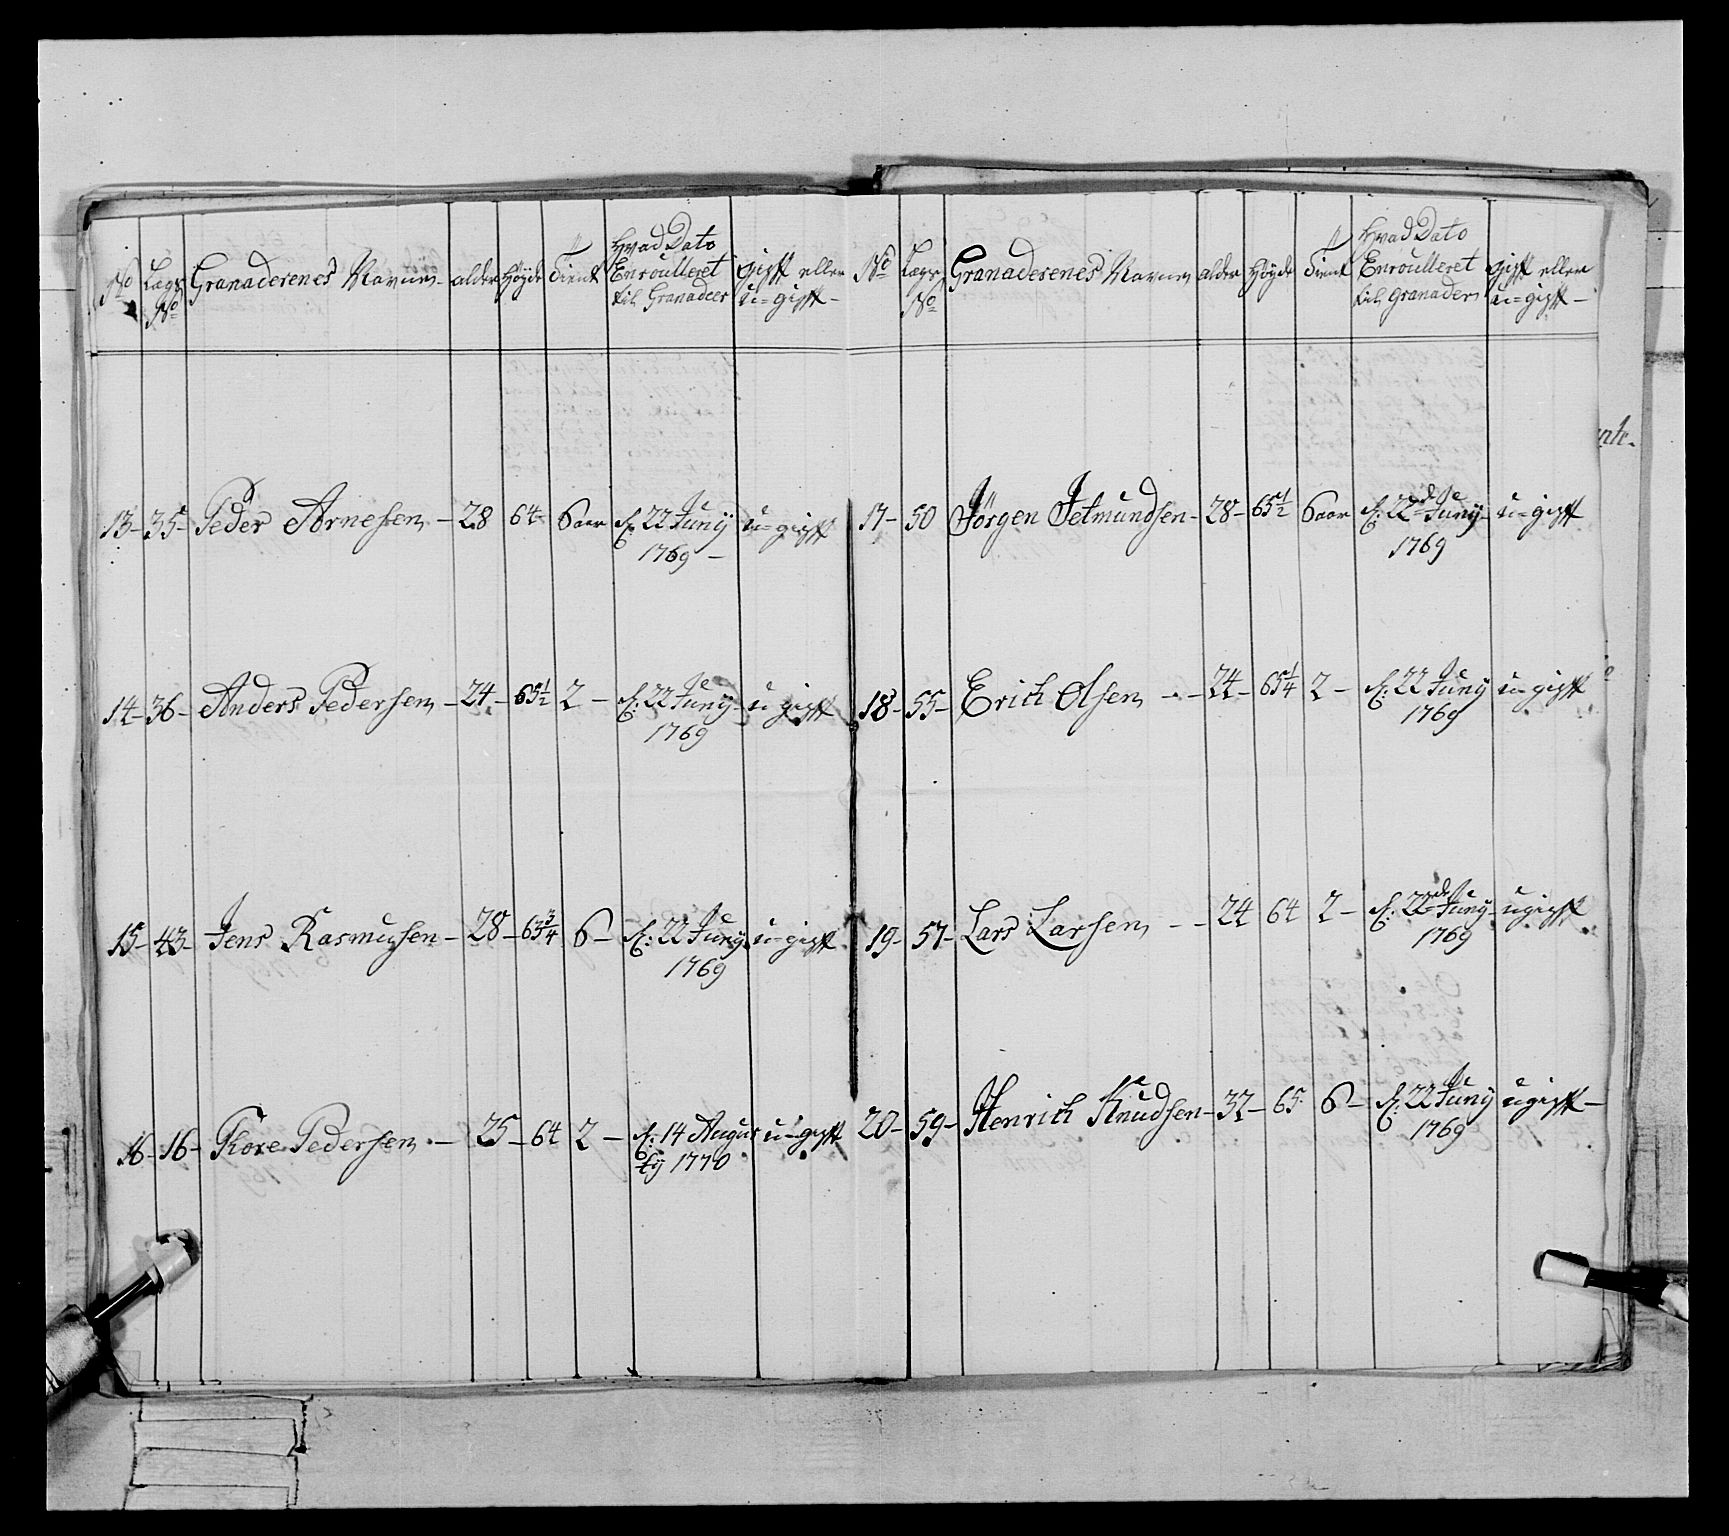 No Lægs No Granaderenes Navne alder Høyde Tient Hvad Dato Enroulleret til Granadeer gift eller u=gift
13 - 35 - Peder Arnesen - 28 64 6 aar d: 22 Juny u=gift
1769 -
14 - 36 - Anders Pedersen - 24 - 65 1/2 2 - d: 22 Juny u gift
1769
15 - 43 - Jens Rasmusen - 28 - 63 3/4 6 - d: 22 Juny u=gift
1769
16 - 16 - Tore Pedersen - 25 - 64 2 - d: 14 Augus u=gift
ty 1770
No Lægs No Granaderenes Navne alder Høyde Tient Hvad Dato Enroulleret til Granader gift eller u=gift -
17 - 50 Jörgen Jetmundsen - 28 - 65 1/2 6 aar d: 22de Juny u=gift
1769
18 - 55 - Erich Olsen - 24 - 65 1/4 2 - d: 22 Juny u=gift
1769
19 - 57 - Lars Larsen - - 24 64 2 - d: 22de Juny ugift
1769
20 - 59 - Henrich Knudsen - 37 - 65 6 - d: 22 Juny ugift -
1769